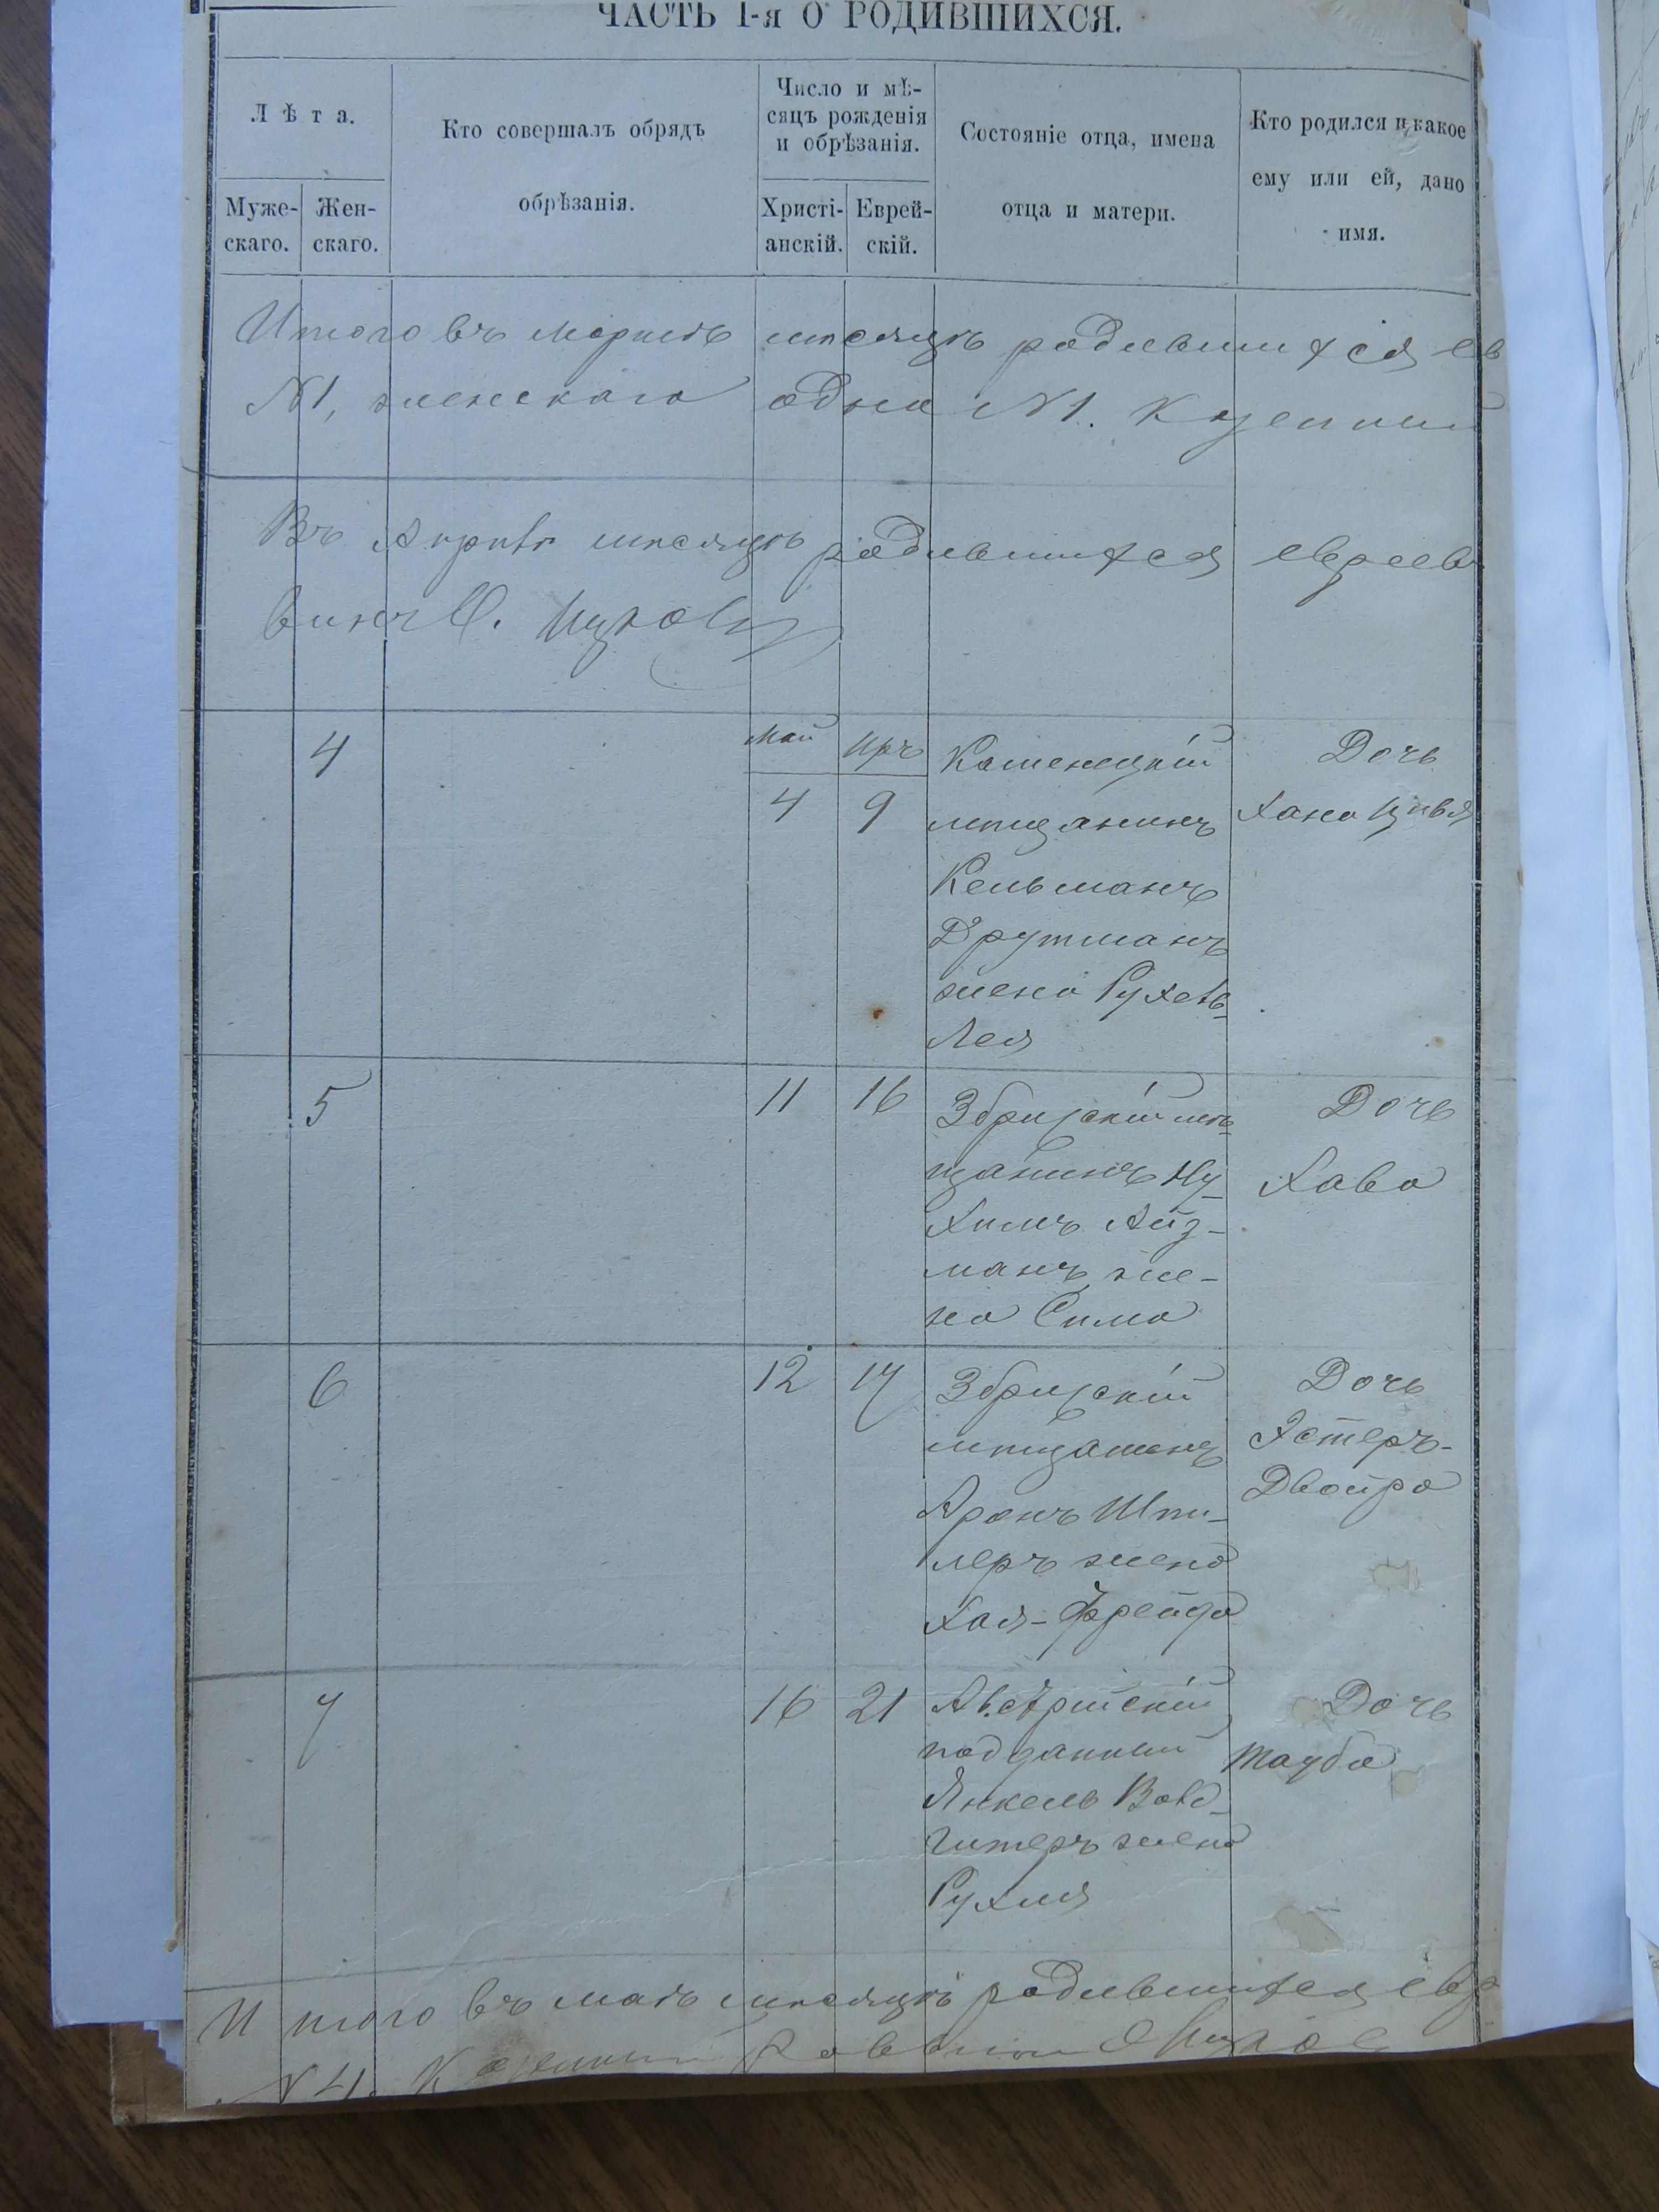 ЧАСТЬ І-я О РОДИВШИХСЯ.
Лѣта.
Муже-
скаго.
Жен-
скаго.
Кто совершалъ обрядъ
обрѣзанія.
Число и мѣ-
сяцъ рожденія
и обрѣзанія.
Христі-
анскій.
Еврей-
скій.
Состояніе отца, имена
отца и матери.
Кто родился и какое
ему или ей, дано
имя.
Итого въ мартѣ мѣсяцѣ родившихся ев
№1, женскаго одна №1. Казенный
Въ мѣсяцѣ родившихся евреевъ
4
Май
Иръ
4
9
Каменецкій
мѣщанинъ
Кельманъ
Друтманъ
жена Рухель-
Лея
Дочь
Хана Цивья
5
11
16
Збризскій мѣ-
щанинъ Ну-
химъ Айз-
манъ, же-
на Сима
Дочь
Хава
6
12
17
Збризскій
мѣщанинъ
Аронъ Шпи-
леръ жена
Хая-Фрейда
Дочь
Эстеръ-
Двойра
7
16
21
Австрійскій
подданный
Янкель
жена
Рухля
Дочь
Тауба
Итого въ маѣ мѣсяцѣ родившихся евр
№4. Казенный Раввинъ